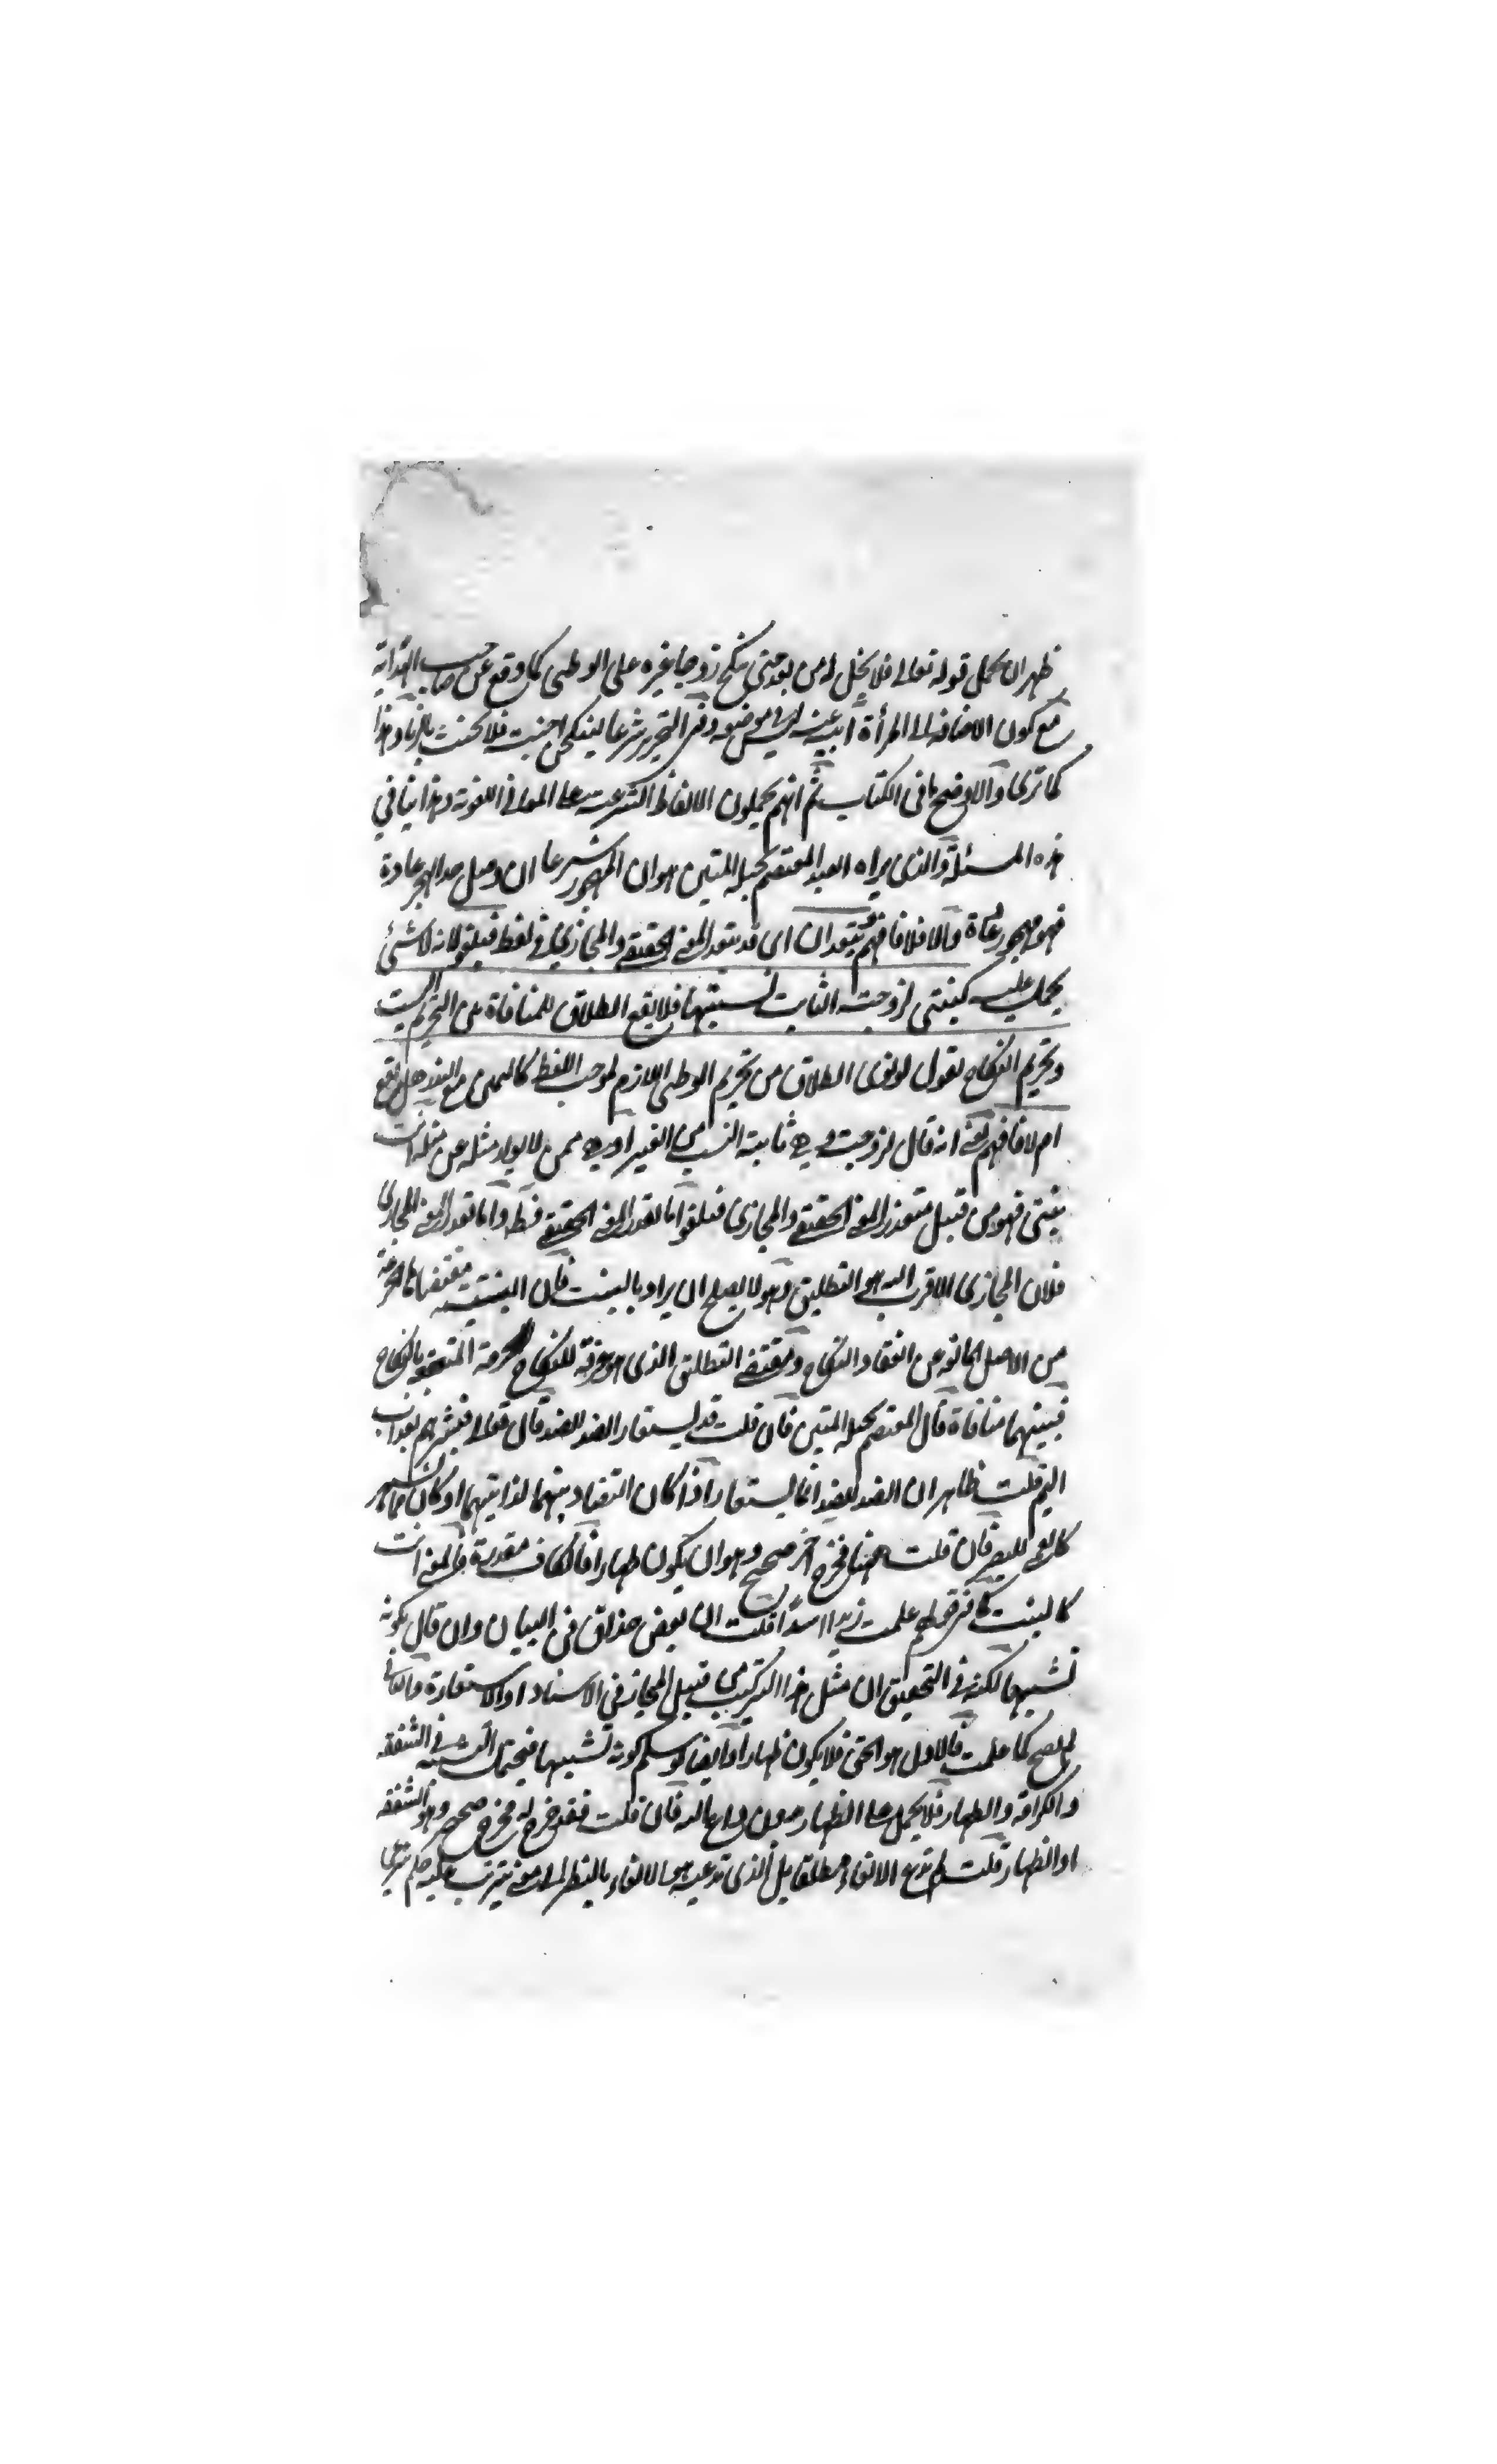 ظهر ان محمل قوله تعالى فلا تحل له من بعد حتى تنكح زوجا غيره على الوطى كما وقع عن صاحب الهداية
مع كون الاضافة الى المرأة آبية عنه ليس في موضعه وفى التحرير شرعا لينكحن اجنبية فلا يحنث بالزنا وهذا
كما ترى والاوضح ما فى الكتاب ثم انهم يحملون الالفاظ الشرعية على المعانى اللغوية وهذا ينافي
هذه المسئلة والذى يراه العبد المعتصم بحبله المتين هو ان المهجور شرعا ان وصل حد الهجر عادة
فهو مهجور عادة والا فلا فافهم يتعذران اى قد يتعذر المعنى الحقيقي والمجازي في لفظ فيلغو لانه لا شئ
يحمل عليه كبنتي لزوجته الثابت نسبتها فلا يقع الطلاق للمنافاة بين التحريم
وتحريم النكاح نقول لو نوى الطلاق من تحريم الوطى اللازم لموجب اللفظ كاليمين مع النذر هل يقع
ام لا فافهم يعنى انه قال لزوجته وهي ثابتة النسب من الغير او هي ممن لا يولد مثله عن مثله انت
بنتى فهو من قبيل متعذر المعنى الحقيقي والمجازى فيلغو اما تعذر المعنى الحقيقي فظ واما تعذر المعنى المجازى
فلان المجازى الاقرب اليه هو التطليق وهو لا يصلح ان يراد بالبنت فان البنتية مقتضاها الحرمة
من الاصل المانعة من انعقاد النكاح ومقتضى التطليق الذى هو رفع للنكاح الحرمة بالنكاح
فبينهما منافاة قال المعتصم بحبله المتين فان قلت قد يستعار الضد للضد قال تعالى فبشرهم بعذاب
اليم قلت ظاهر ان الضد للضد انما يستعار اذا كان التضاد بينهما لذاتيهما او كان مما يشتهر
للبصر فان قلت ههنا مخرج آخر صحيح وهو ان يكون ظهارا فالكاف مقدرة فالمعنى انت
كالبنت كما فى قولهم علمت زيدا اسدا قلت ان بعض حذاق فن البيان وان قال بكونه
تشبيها لكنه في التحقيق ان مثل هذا التركيب من قبيل المجاز في الاسناد او الاستعارة والثانى
لم يصح كما علمت فالاول هو الحق فلا يكون ظهارا وايضا لو سلم كونه تشبيها فيحتمل التشبيه في الشفقة
والكرامة والظهار فلا يحمل على الظهار بدون داع اليه فان قلت فقد خرج له مخرج صحيح وهو الشفقة
او الظهار قلت لم ندع الالغاء مطلقا بل الذى ندعيه هو الالغاء بالنظر الى معنى يترتب عليه حكم شرعى